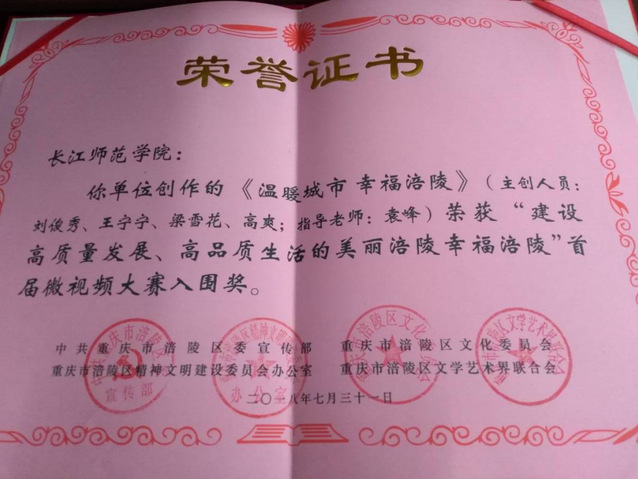 荣誉证书
长江师范学院：
你单位创作的《温暖城市 幸福涪陵》（主创人员：
刘俊秀、王宁宁、梁雪花、高爽；指导老师：袁峰）荣获“建设
高质量发展、高品质生活的美丽涪陵幸福涪陵”首
届微视频大赛入围奖。
中共重庆市涪陵区委宣传部
重庆市涪陵区文化委员会
重庆市涪陵区精神文明建设委员会办公室
重庆市涪陵区文学艺术界联合会
二〇一八年七月三十一日
宣传部
办公室